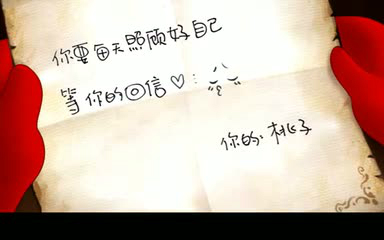 你要每天照顾好自己
等你的回信♡
你的桃子